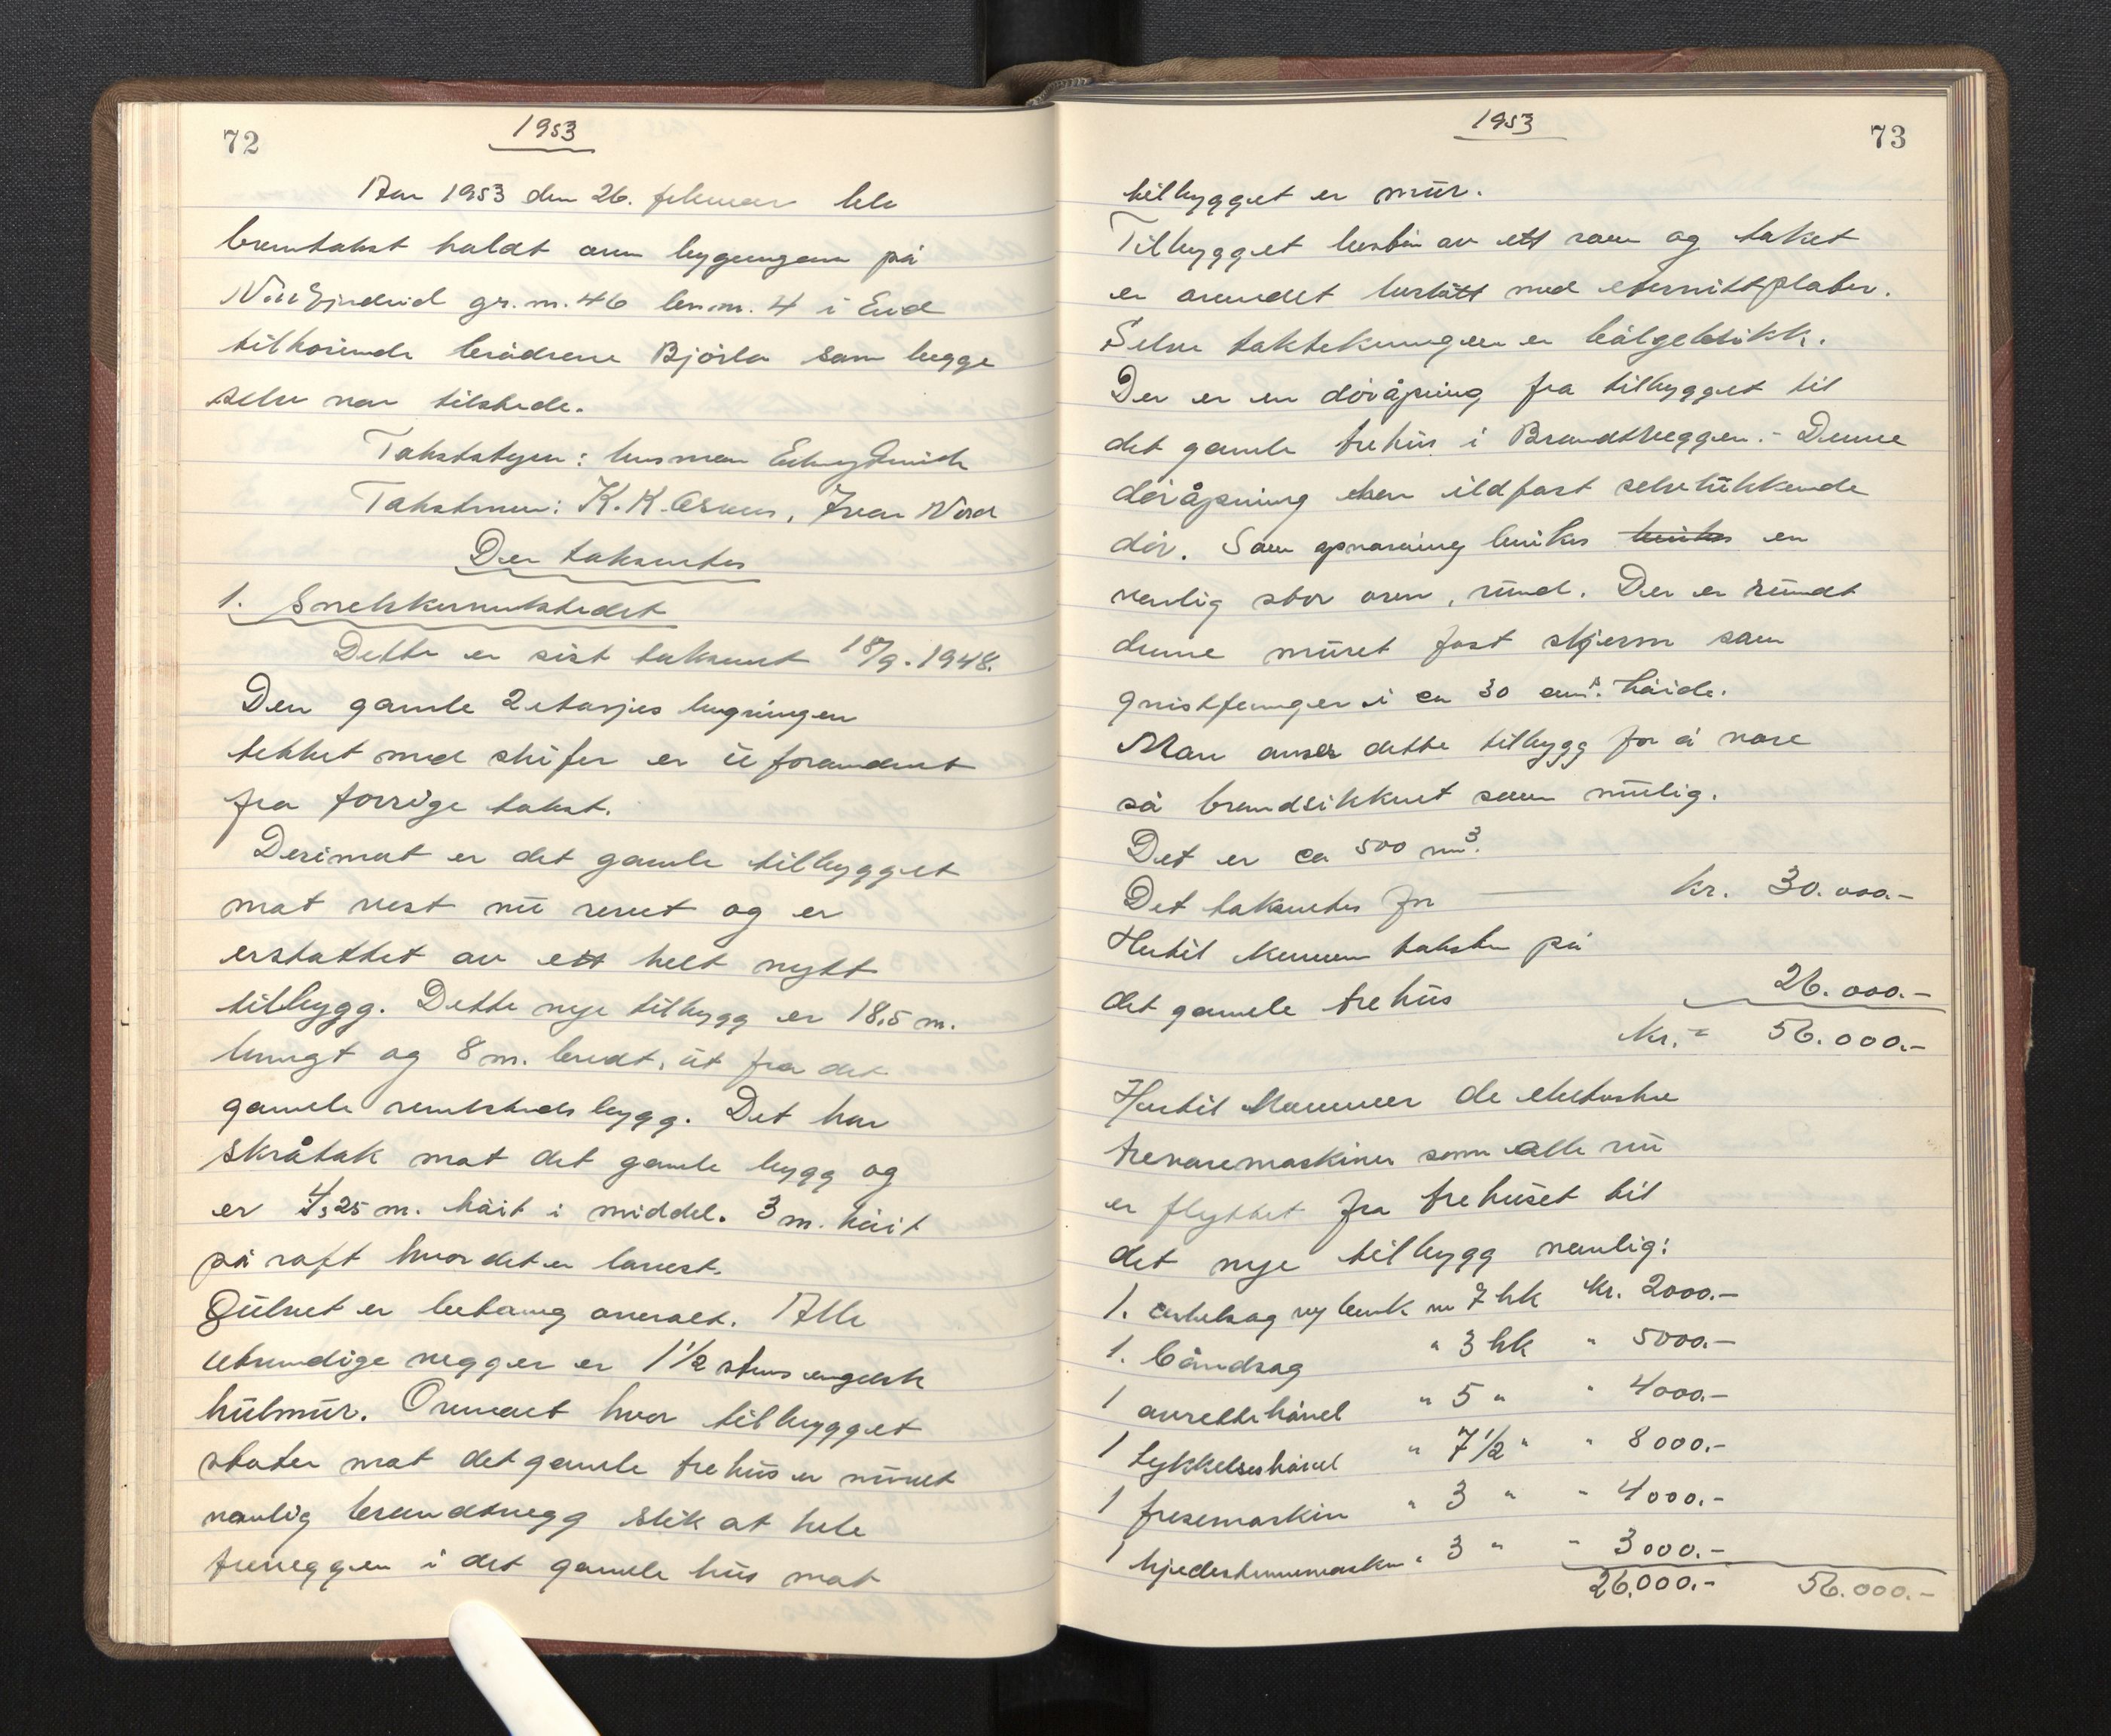 72
1953
Aar 1953 den 26. februar ble
branntakst holdt over bygningene på
gr.nr. 46 br.nr. 4 i Eid
tilhørende brødrene Bjørlo som begge
selv var tilstede.
Takststyrer: lensmann
Takstmenn: K. K. Ivar Nord
Der taksertes
1. Snekkerverkstedet
Dette er sist taksert 18/9. 1948.
Den gamle 2 etasjes bygningen
tekket med skifer er uforandret
fra forrige takst.
Derimot er det gamle tilbygget
mot vest nu revet og er
erstattet av ett helt nytt
tilbygg. Dette nye tilbygg er 18,5 m.
langt og 8 m. bredt, ut fra det
gamle verkstedsbygg. Det har
skråtak mot det gamle bygg og
er 4,25 m. høit i middel. 3 m. høit
på raft hvor det er lavest.
Gulvet er betong overalt. Alle
utvendige vegger er 1 1/2 stens engelsk
hulmur. Overalt hvor tilbygget
støter mot det gamle trehus er muret
vanlig brandvegg slik at hele
treveggen i det gamle hus mot
1953
73
tilbygget er mur.
Tilbygget består av ett rom og taket
er innvendig forstøtt med eternittplater.
Selve taktekningen er bølgeblikk.
Der er en døråpning fra tilbygget til
det gamle trehus i Brandveggen. - Denne
døråpning har ildfast selvlukkende
dør. Som opvarming brukes brukes en
vanlig stor ovn, rund. Der er rundt
denne muret fast skjerm som
gnistfanger i ca 30 cm's høide.
Man anser dette tilbygg for å være
så brandsikkert som mulig.
Det er ca 500 m³.
Det takseres for kr. 30.000.-
Hertil kommer taksten på
det gamle trehus 26.000.-
kr. = 56.000.-
Hertil kommer de elektriske
trevaremaskiner som alle nu
er flyttet fra trehuset til
det nye tilbygg nemlig:
1. sag m benk m 7 hk kr. 2000.-
1. båndsag " 3 hk " 5000.-
1 avrettehøvel " 5 " " 4000.-
1 tykkelseshøvel " 7 1/2 " " 8000.-
1 fresemaskin " 3 " " 4000.-
1 kjedestemmemaskin " 3 " " 3000.-
26.000.- 56.000.-